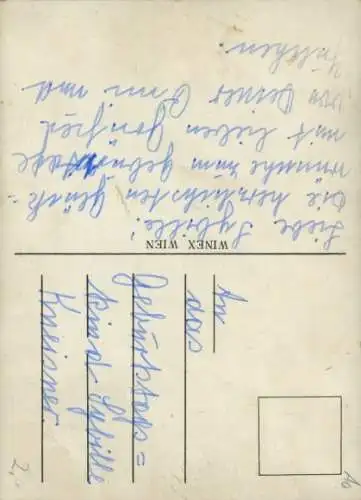 Liebe Sybille!
Die herzlichsten Glück=
wünsche zum Geburtstage
mit lieben
von Deiner Omi und
WINEX WIEN
An
das
Geburtstags=
kind Sybille
2,-